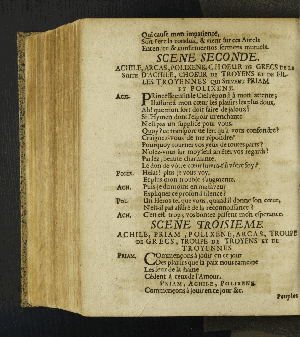 Qui cause mon impatience,
Son Pere la conduit, & vient sur ces Autels
Entendre & confirmer nos sermens mutuels.
SCENE SECONDE.
ACHILE, ARCAS, POLIXENE, CHOEUR DE GRECS DE LA
SUITE D'ACHILE, CHOEUR DE TROYENS ET DE FIL-
LES TROYENNES QUI SUIVENT PRIAM
ET POLIXENE.
ACH. Princesse enfin le Ciel répond à mon attente;
Il assure à mon cœur les plaisirs les plus doux,
Ah! que mon sort doit faire de jaloux!
Si l'Hymen dont l'espoir m'enchante
N'est pas un supplice pour vous.
Quoy! ce transport ne sert qu'à vous confondre?
Craignez-vous de me répondre?
Pourquoy tourner vos yeux de toutes parts?
N'osez-vous sur moy seul arrêter vos regards?
Parlez, beauté charmante.
Le don de vôtre cœur
POLIX. Helas! plus je vous voy,
Et plus mon trouble s'augmente.
ACH. Puis-je
Expliquez ce profond silence?
POL. Un Heros tel que vous, quand il donne son cœur,
N'est-il pas assûré de la reconnoissance?
ACH. C'en est trop, vos bontez passent mon esperance.
SCENE TROISIEME
ACHILE, PRIAM, POLIXENE, ARCAS, TROUPE
DE GRECS, TROUPE DE TROYENS ET DE
TROYENNES.
PRIAM. Commençons à joüir en ce jour
Des plaisirs que la paix nous ramene
Les feux de la haine
Cédent à ceux de l'Amour.
PRIAM, ACHILE, POLIXENE.
Commençons à joüir en ce jour &c.
Peuples